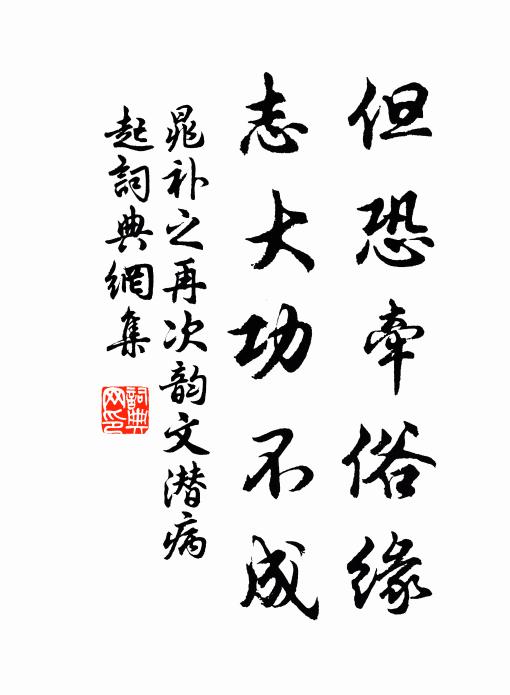 但恐牽俗緣
志大功不成
晁补之再次韵文潜病
起詞典網集
詞典网印